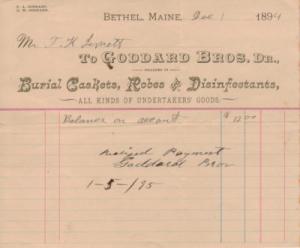 BETHEL, MAINE, Dec 1 1894
Mr. T. H.
TO GODDARD BROS. DR.,
DEALERS IN
Burial Caskets, Robes & Disinfectants,
ALL KINDS OF UNDERTAKERS' GOODS.
Balance on account $ 12.00
Received Payment
Goddard Bros
1-5-/95